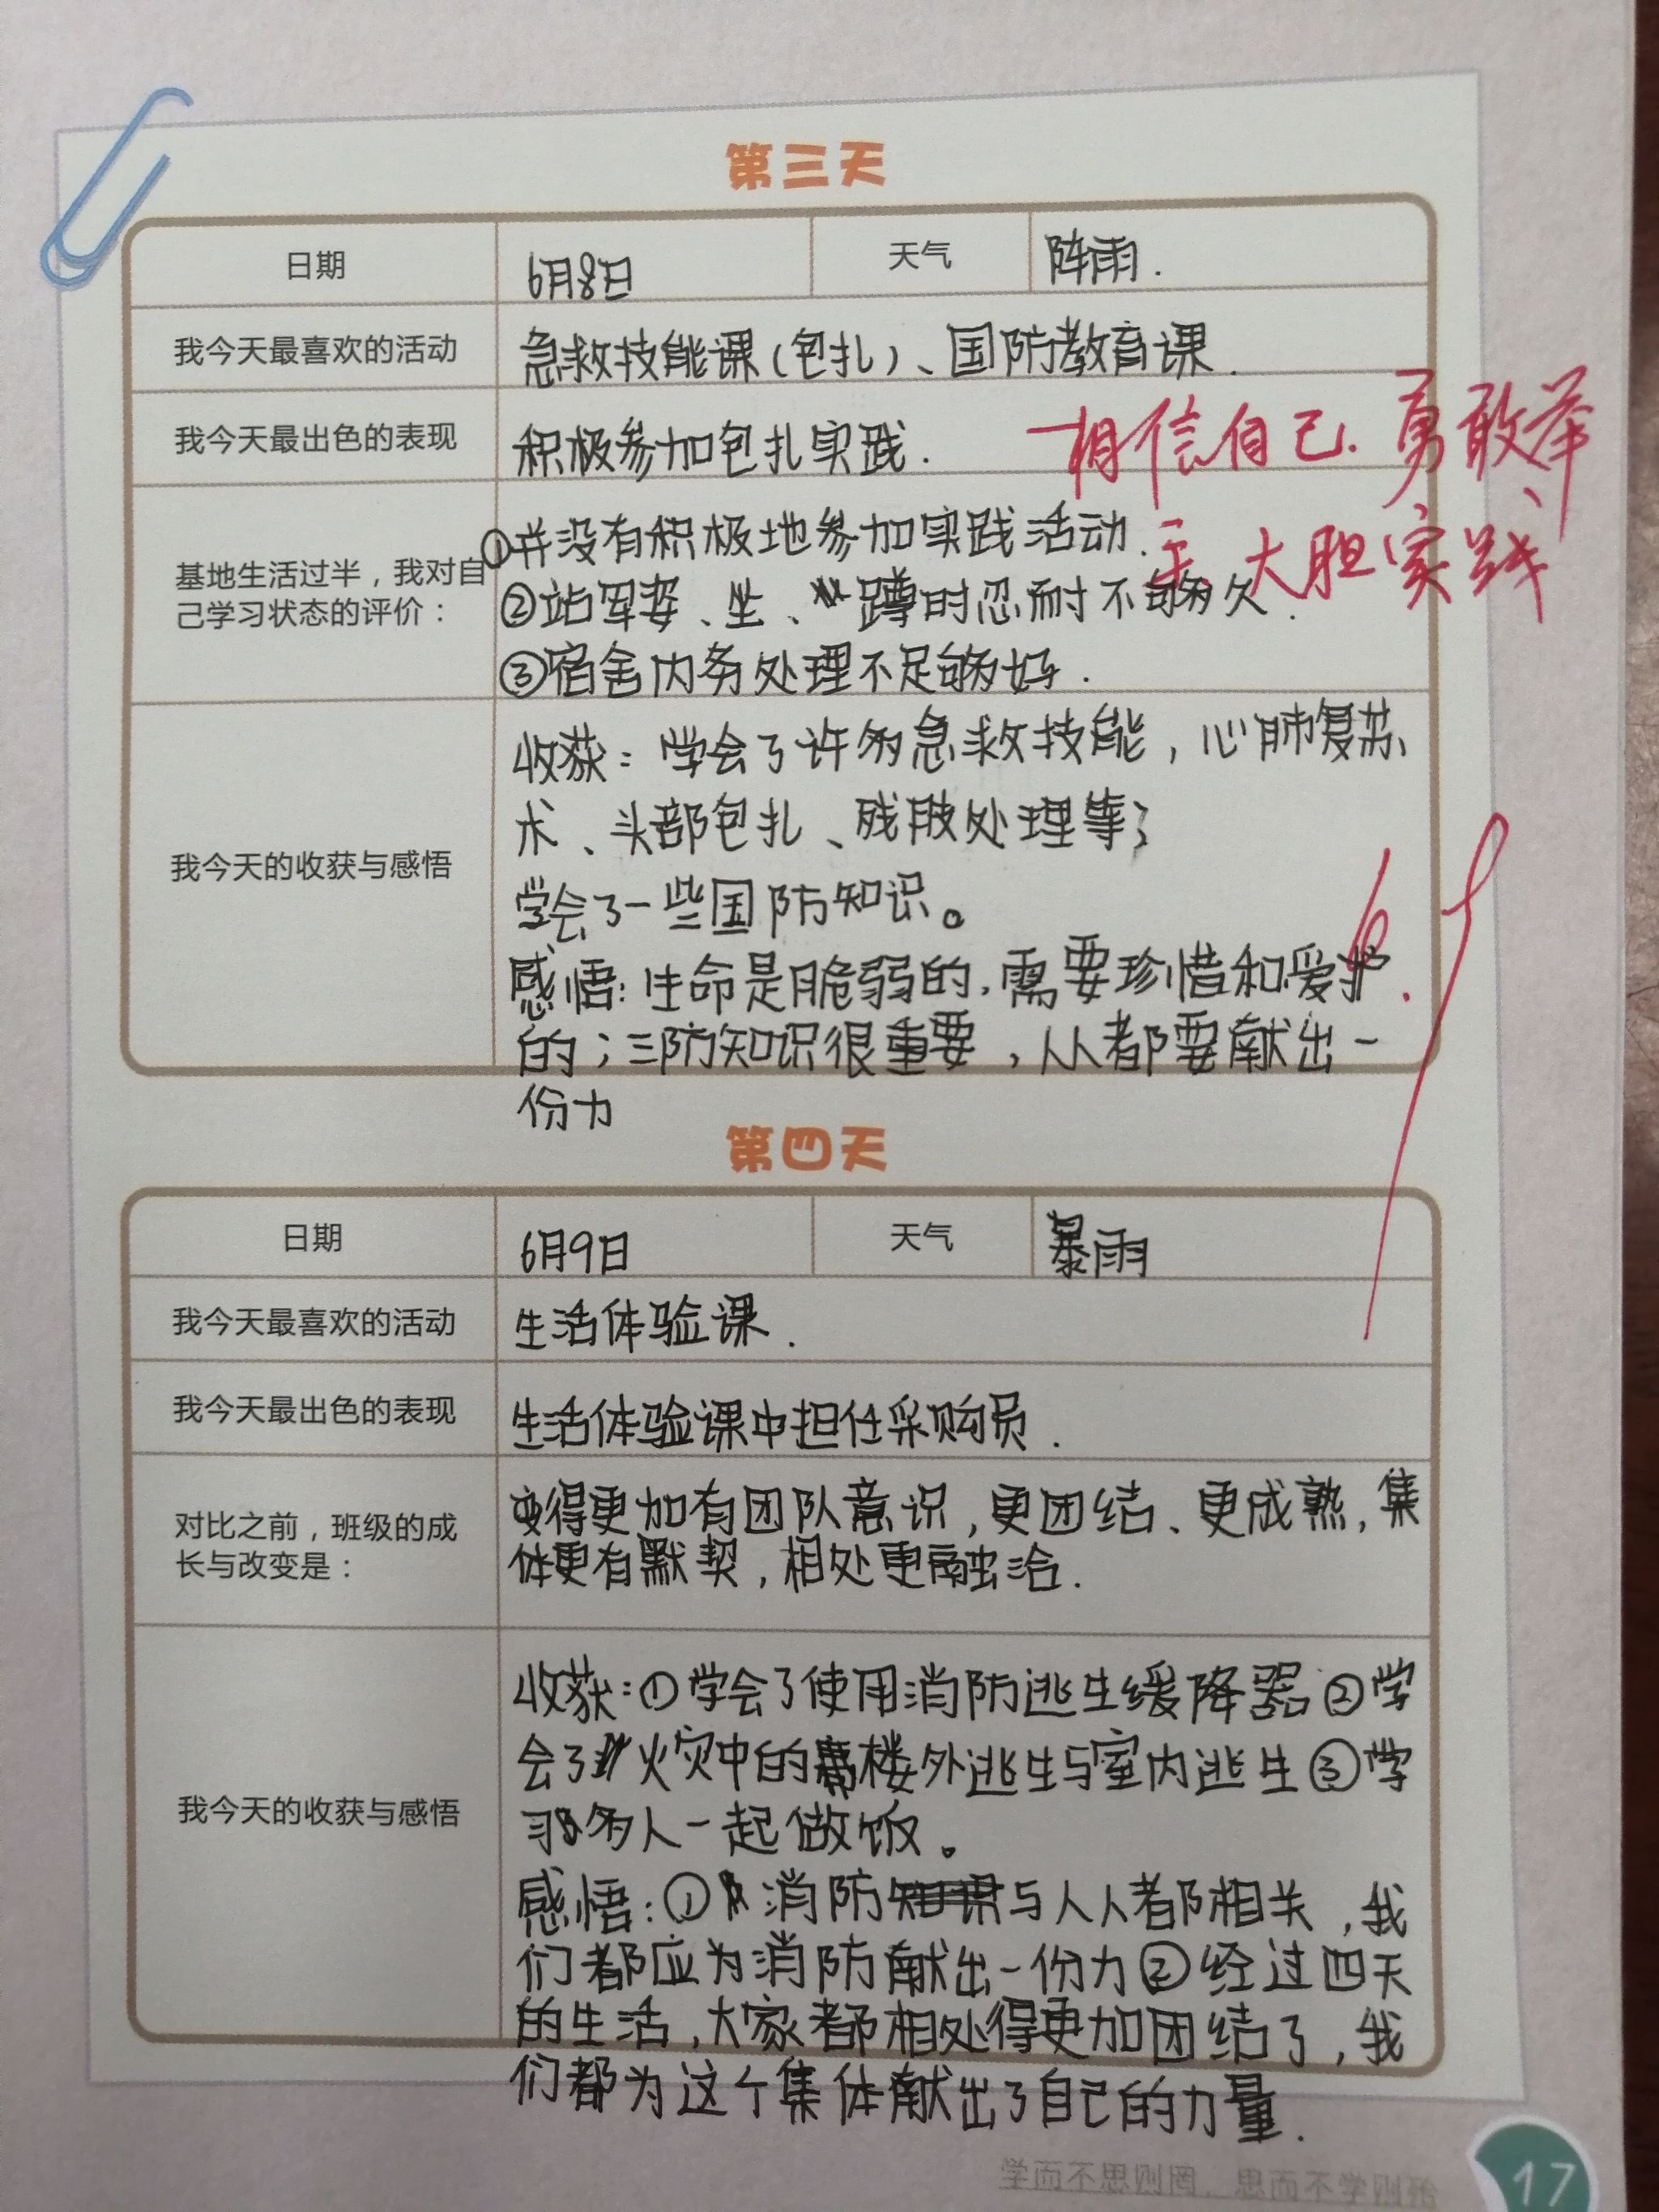 第三天
日期 6月8日 天气 阵雨.
我今天最喜欢的活动 急救技能课(包扎)、国防教育课.
我今天最出色的表现 积极参加包扎实践.
相信自己.勇敢举
手、大胆实践
基地生活过半，我对自
己学习状态的评价：
①并没有积极地参加实践活动.
②站军姿、坐、蹲时忍耐不够久.
③宿舍内务处理不足够好.
我今天的收获与感悟
收获：学会了许多急救技能，心肺复苏
术、头部包扎、残肢处理等;
学会了一些国防知识。
感悟:生命是脆弱的,需要珍惜和爱护
的;三防知识很重要,人人都要献出一
份力
第四天
日期 6月9日 天气 暴雨
我今天最喜欢的活动 生活体验课.
我今天最出色的表现 生活体验课中担任采购员.
对比之前，班级的成
长与改变是：
变得更加有团队意识,更团结、更成熟,集
体更有默契,相处更融洽.
我今天的收获与感悟
收获:①学会了使用消防逃生缓降器②学
会了火灾中的楼外逃生与室内逃生③学
习多人一起做饭。
感悟:①消防与人人都相关,我
们都应为消防献出一份力②经过四天
的生活,大家都相处得更加团结了,我
们都为这个集体献出了自己的力量.
学而不思则罔，思而不学则殆
17